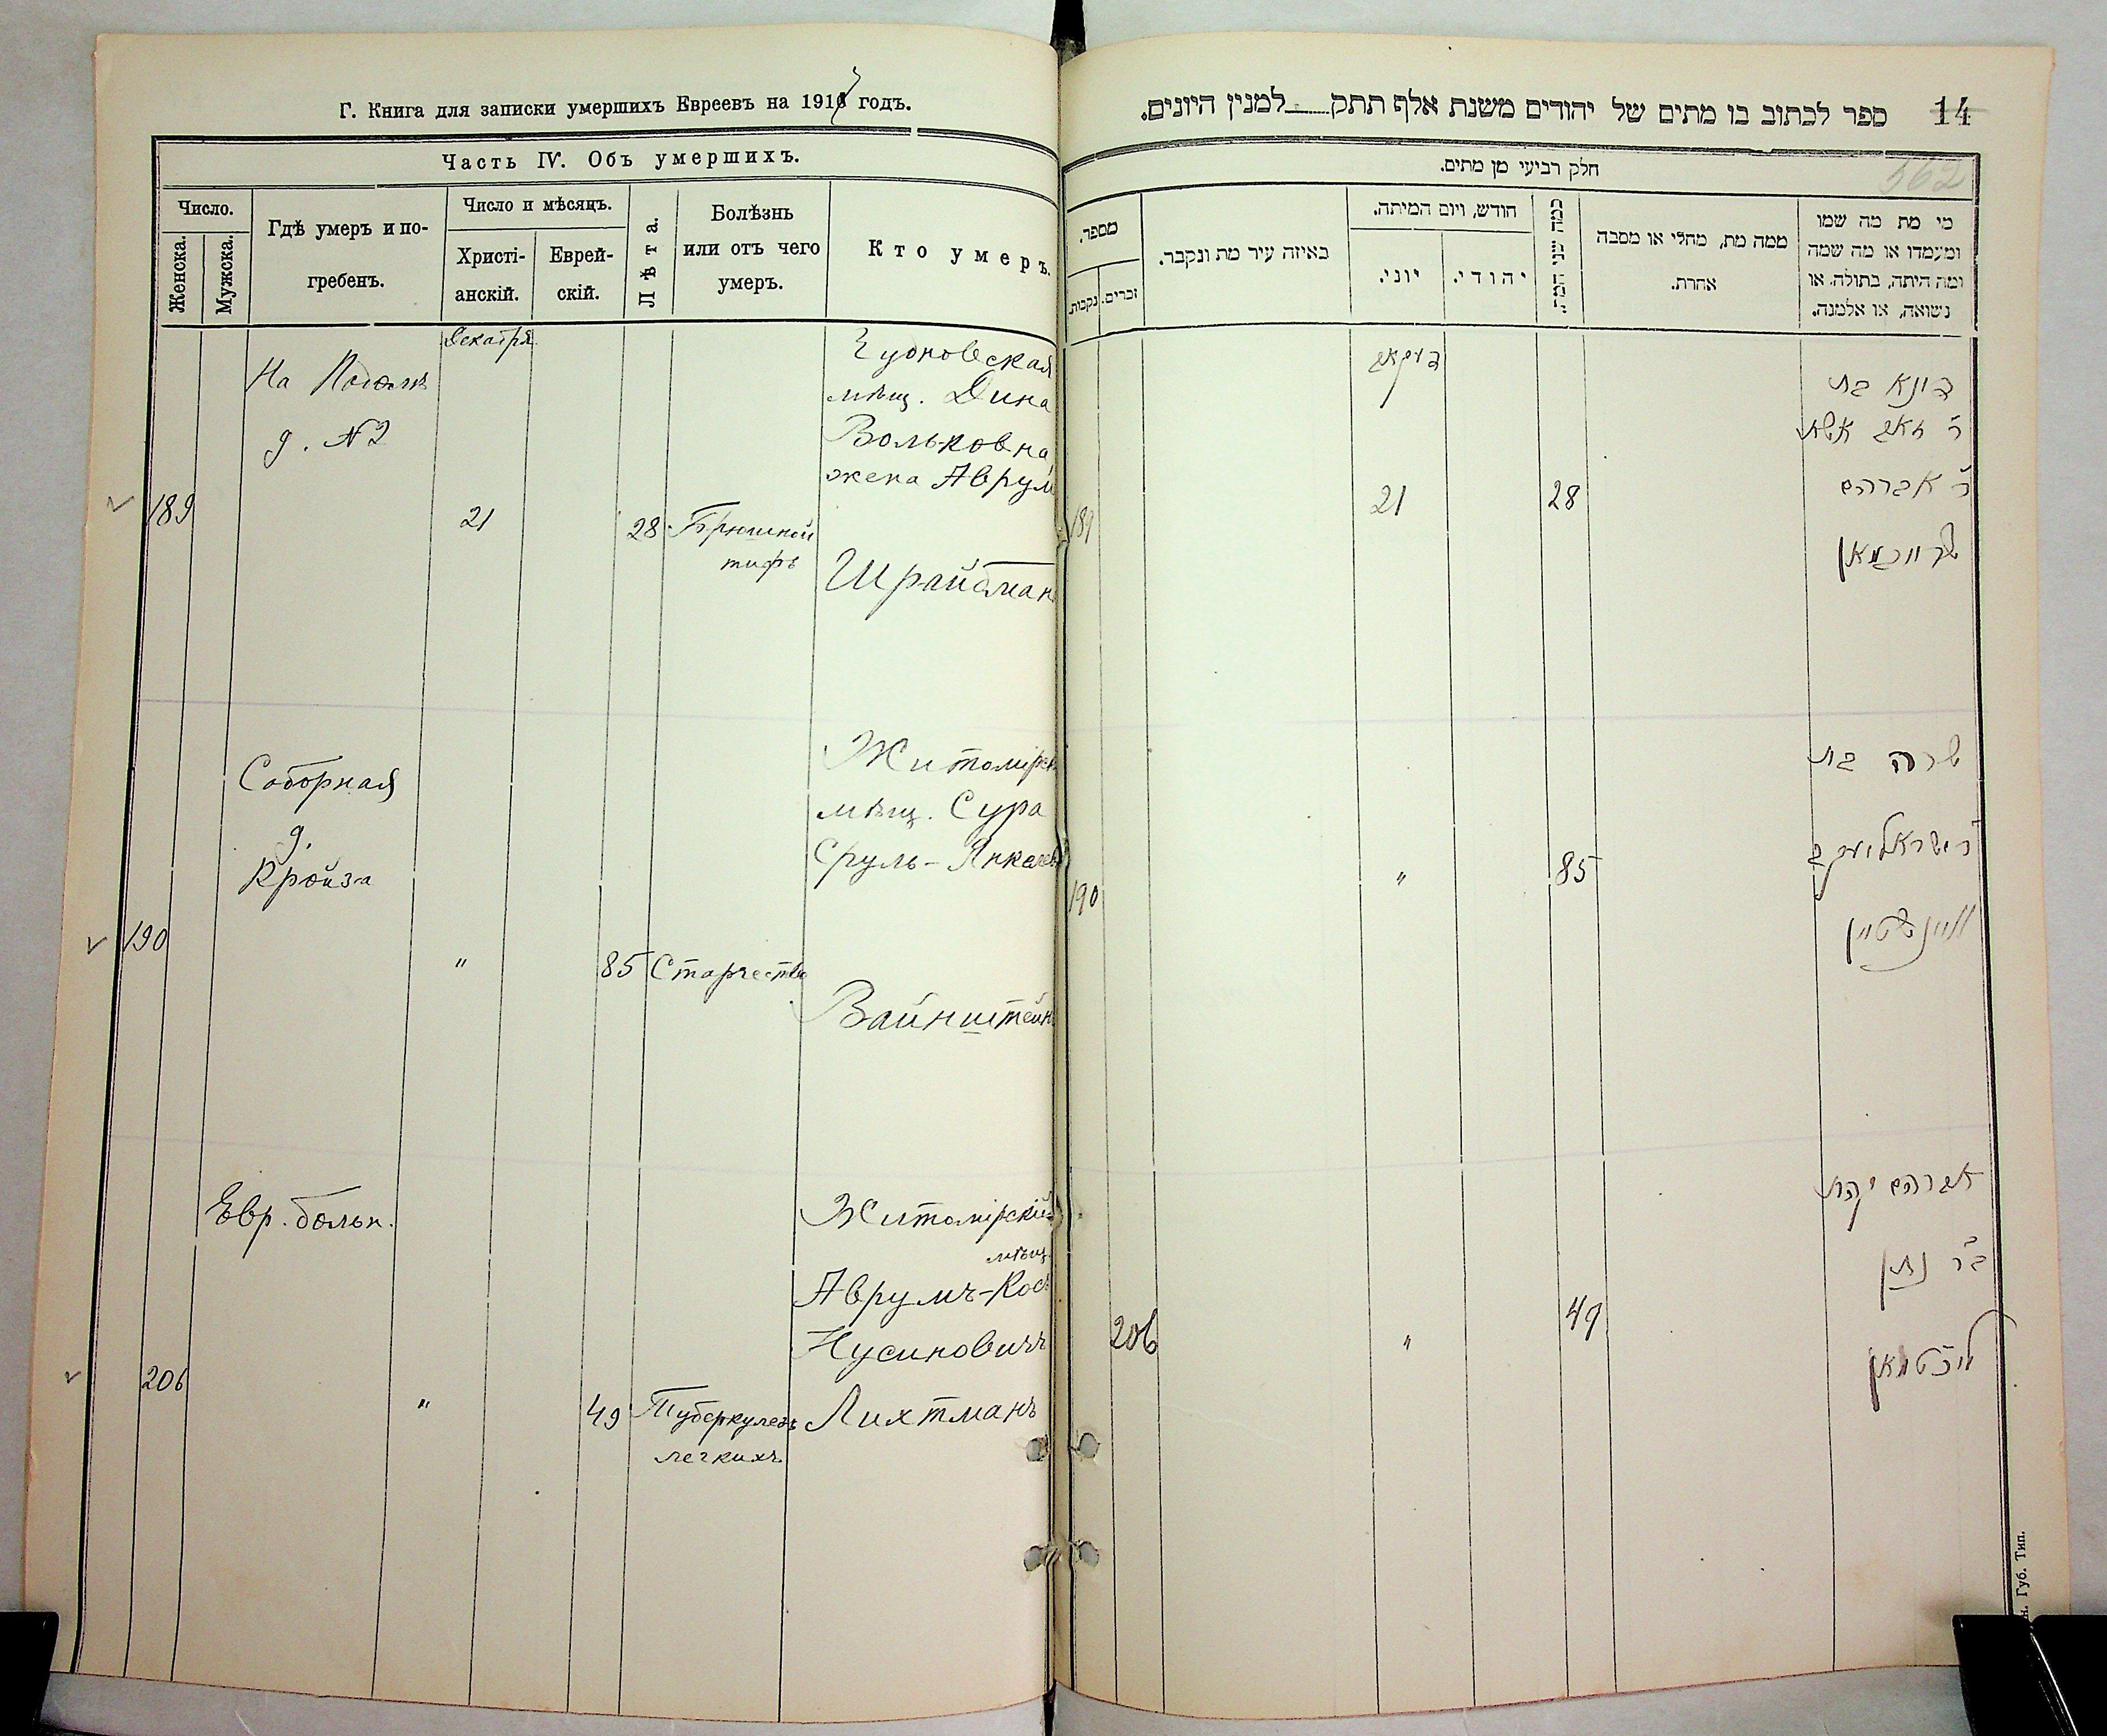 Г. Книга для записки умершихъ Евреевъ на 191 годъ.
Часть IV. Объ умершихъ.
Число.
Женска.
Мужска.
Гдѣ умеръ и по-
гребенъ.
Число и мѣсяцъ.
Христі-
анскій.
Еврей-
скій.
Лѣта.
Болѣзнь
или отъ чего
умеръ.
Кто умеръ.
Декабря
На Подолѣ
д. №2
189
21
28
Брюшной
тифъ
Чудновская
мѣщ. Дина
Вольковна,
жена Аврум
Шрайбман
Соборная
д.
Кройза
190
"
85
Старчество
Житомірск
мѣщ. Сура
Сруль-Янкелев
Вайнштейн
Евр. больн.
206
"
49
Туберкулезъ
легкихъ
Житомірскій
мѣщ.
Аврумъ-Кос
Нусиновичъ
Лихтманъ
ספר לכתוב בו מתים של יהודים משנת אלף תתק למנין היונים.
14
562
חלק רביעי מן מתים.
מספר.
נקבות.
זכרים.
באיזה עיר מת ונקבר.
חודש, ויום המיתה.
יוני.
יהודי.
כמה שני המת.
ממה מת, מחלי או מסבה
אחרת.
מי מת מה שמו
ומעמדו או מה שמה
ומה היתה, בתולה, או
נשואה, או אלמנה.
דעקאב
189
21
28
דינא בת
ר' וואב אשת
ר' אברהם
שרייבמאן
190
"
85
שרה בת
ר' ישראל יעקב
וויינשטיין
206
"
49
אברהם יקות
ב"ר נתן
ליכטמאן
н. Губ. Тип.